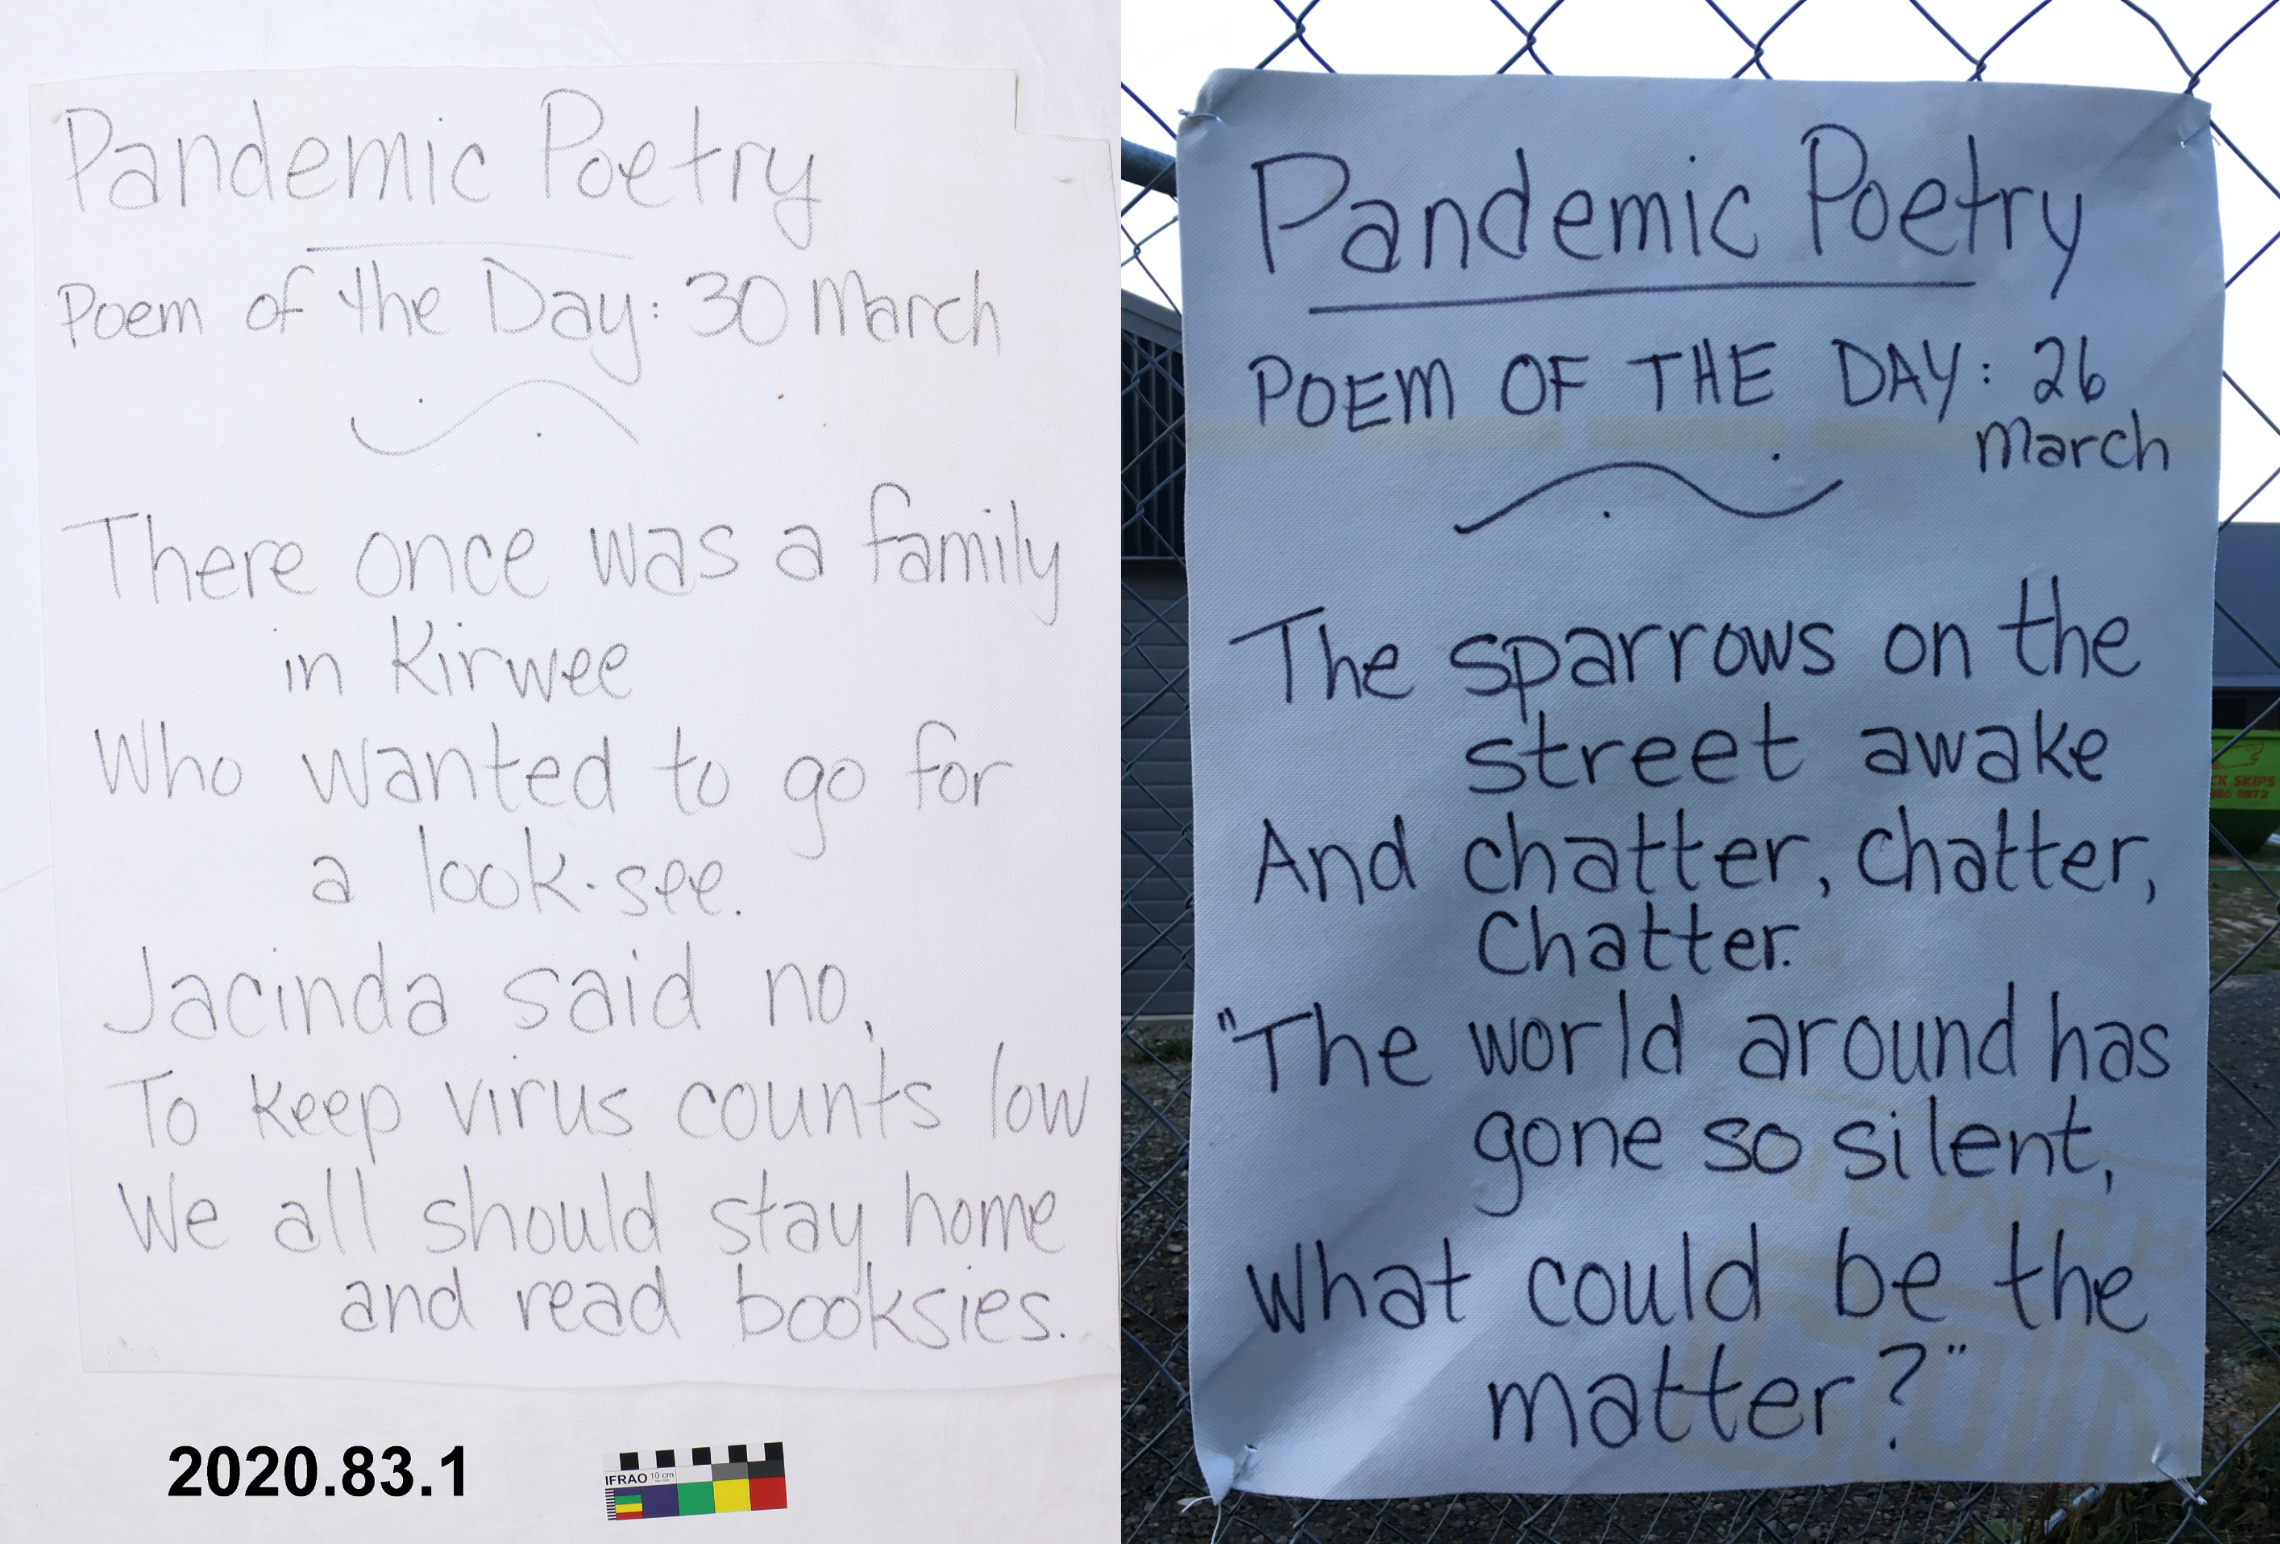 Pandemic Poetry
Poem of the Day: 30 March
There once was a family
in Kirwee
Who wanted to go for
a look-see.
Jacinda said no,
To keep virus counts low
We all should stay home
and read booksies.
2020.83.1
IFRAO 10 cm
Pandemic Poetry
POEM OF THE DAY: 26
March
The sparrows on the
street awake
And chatter, chatter,
Chatter.
"The world around has
gone so silent,
What could be the
matter?"
SKIPS